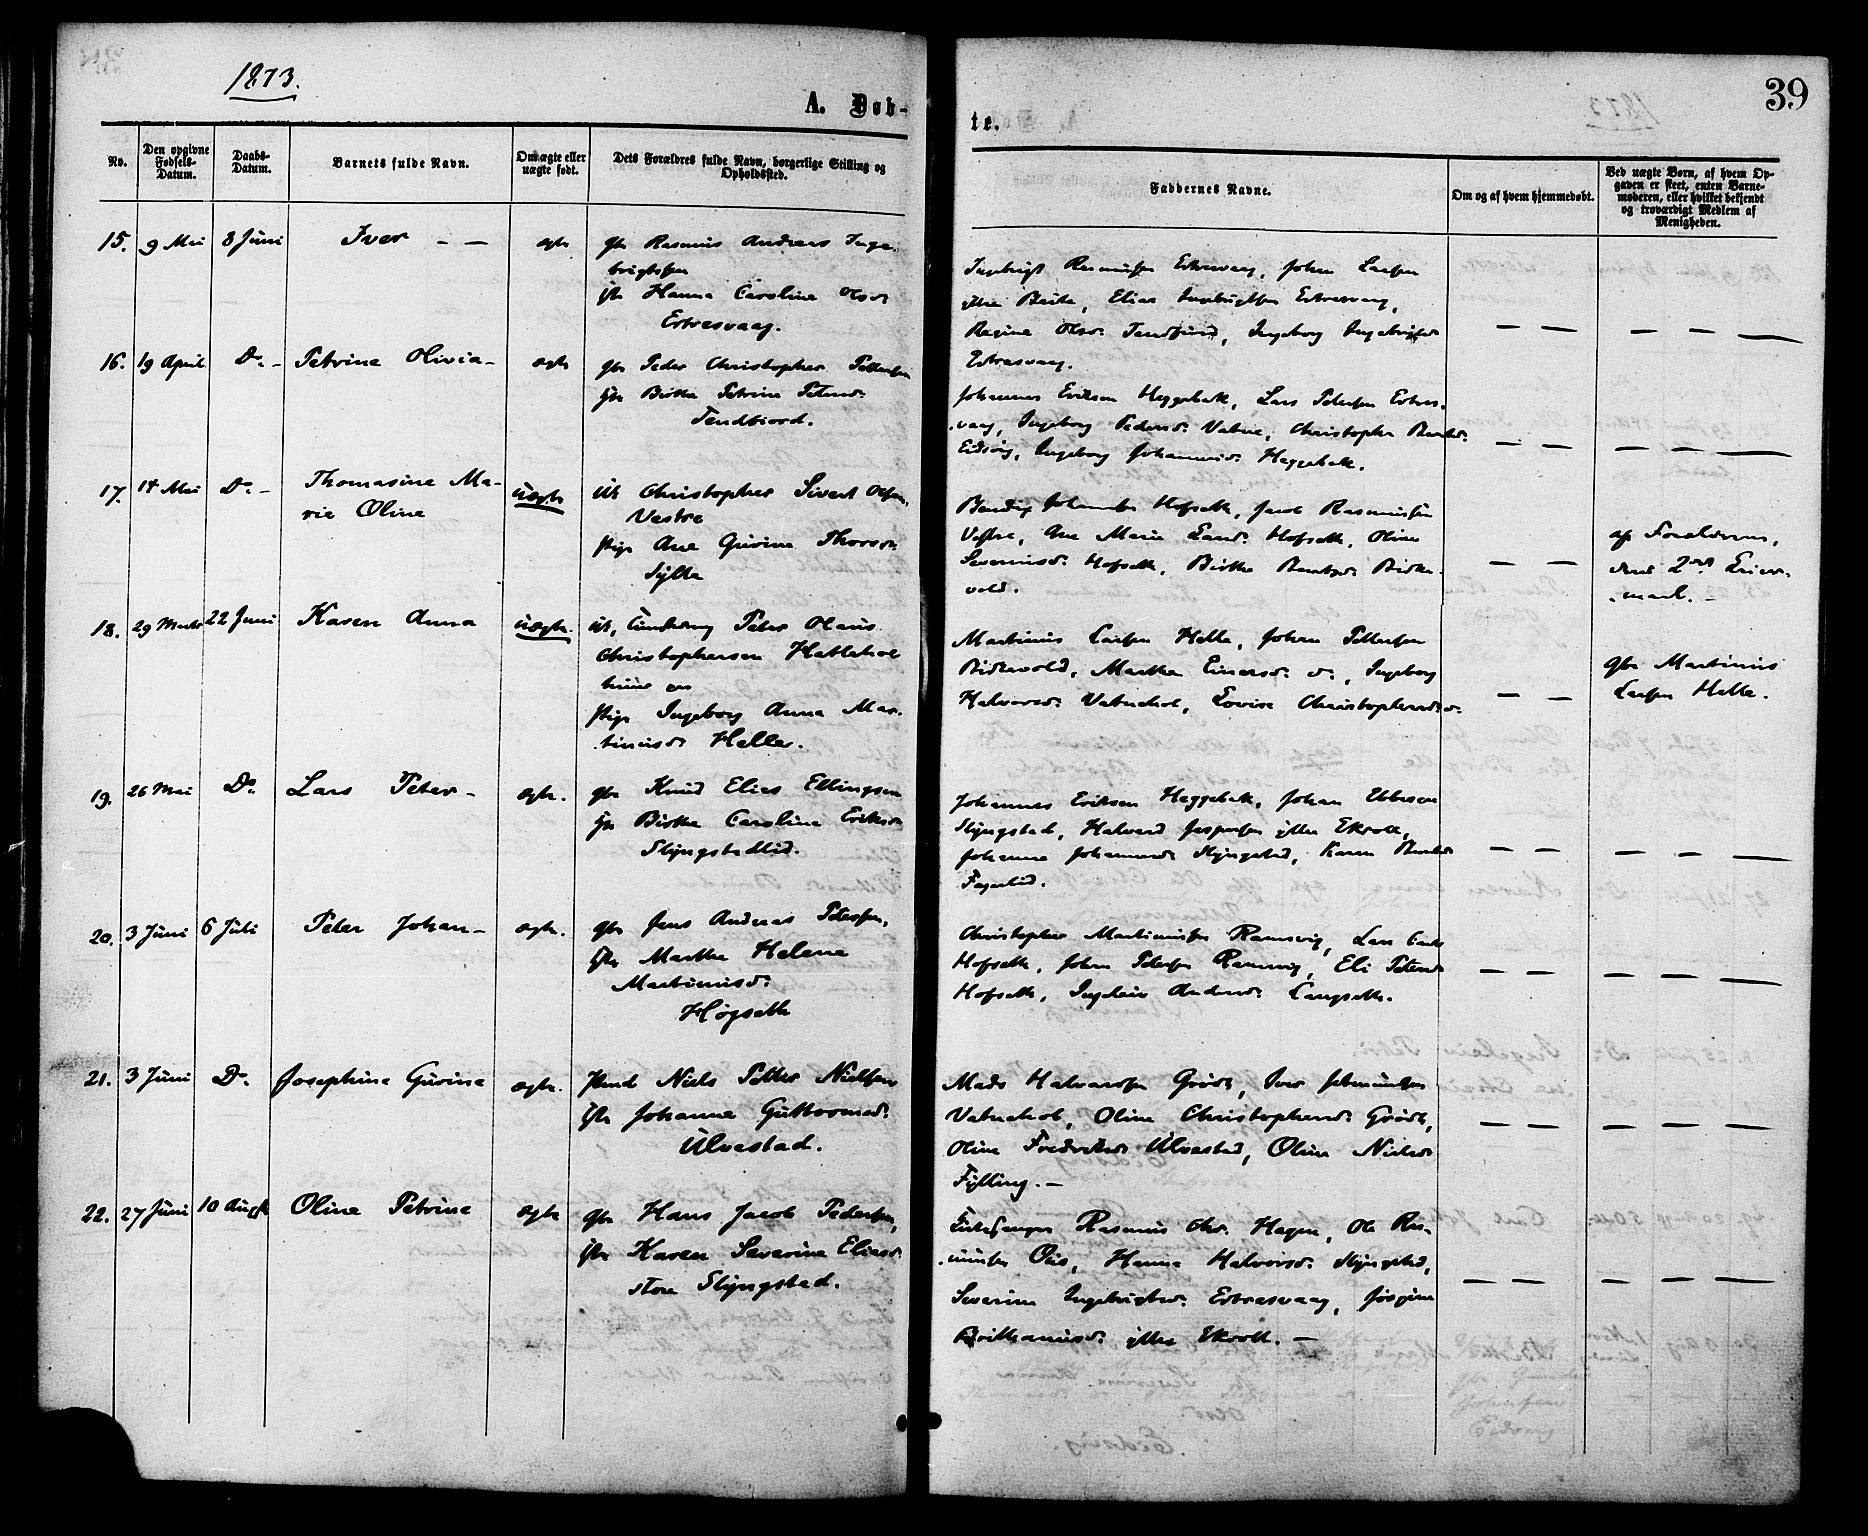 1873.
39
A. Døb-
te.
No.
Den opgivne Fødsels-Datum.
Daabs-Datum.
Barnets fulde Navn.
Om ægte eller uægte født.
Dets Forældres fulde Navn, borgerlige Stilling og Opholdssted.
Faddernes Navne.
Om og af hvem hjemmedøbt.
Ved uægte Børn, af hvem Opgaven er skeet, enten Barnemoderen, eller hvilket bekjendt og troværdigt Medlem af Menigheden.
15. 9 Mai 8 Juni Iver — — ægte
Rasmus Andreas Inge-
brigtsen
Hanna Caroline Olsd.
Ertresvaag.
Ingebrigt Rasmussen Ertresvaag, Johan Larsen
ytre Beite, Elias Ingebrigtsen Ertresvaag,
Regine Olsd. Tenfjord, Ingeborg Ingebrigtsd.
Ertresvaag.
— — — — —
16. 19 April Do. - Petrine Olivia - ægte
Peder Christopher Pettersen
Birthe Petrine Petersd.
Tendfiord.
Johannes Eriksen Heggebak, Lars Petersen Ertres-
vaag, Ingeborg Pedersd. Vatne, Christopher
Eidsvig, Ingeborg Johannesd. Heggebak.
— — — — —
17. 14 Mai Do. - Thomasine Ma-
rie Oline
uægte
Christopher Sivert Olsen,
Vestre
pige Ane Gurine Thorsd.
Sylte
Johannes Hofseth, Jacob Rasmussen
Vestre, Ane Marie Hofseth, Oline
Severinsd. Hofseth, Birthe Birke-
vold.
— —
af Forældrene,
deres 2det Leier-
maal. -
18. 29 Marts 22 Juni Karen Anna uægte.
Peter Olaus
Christophersen Hatlehol
pige Ingeborg Anna Mar-
tinusd. Helle.
Martinus Larsen Helle, Johan Pettersen
Birkevold, Marthe Einersd. Ingeborg
Halvorsd. Vatnehol, Lovise Christophersd.
— —
Martinus
Larsen Helle.
19. 26 Mai Do. Lars Peter - ægte.
Knud Elias Ellingsen
Birthe Caroline Eriksd.
Slyngstadlid.
Johannes Eriksen Heggebak, Johan Ebbesen
Slyngstad, Halvard Jespersen ytre Ekroll,
Johanne Johannesd. Slyngstad, Karen
Fagerlid.
— — — — —
20. 3 Juni 6 Juli Peter Johan - ægte.
Jens Andreas Petersen,
Marthe Helene
Martinusd.
Høgseth
Christopher Martinussen Ramsvig, Lars
Hofseth, Johan Petersen Ramsvig, Eli Petersd.
Hofseth, Andersd. Langseth.
— — — — —
21. 3 Juni Do. Josephine Gurine ægte.
Niels Petter Nielsen
Johanne Guttormsd.
Ulvestad.
Mads Halvorsen Grøde, Iver
Vatnehol, Oline Christophersd. Grøde,
Oline Fredriksd. Ulvestad, Oline Nielsd.
Fylling. —
— — — — —
22. 27 Juni 10 Augst Oline Petrine ægte
Hans Jacob Pedersen,
Karen Severine Eliasd.
store Slyngstad.
Kirkesanger Rasmus Hagen, Ole Ras-
mussen Hanna Halvorsd. Slyngstad,
Severine Ingebrigtsd. Ertresvaag,
ytre Ekroll. —
— — — — —